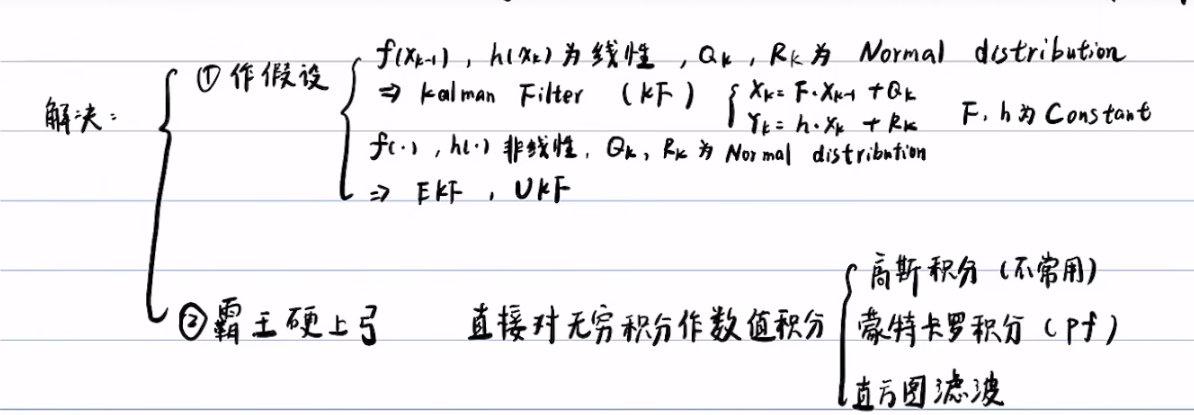 解决：
① 作假设
f(X_{k-1}), h(X_k) 为线性, Q_k, R_k 为 Normal distribution
⇒ Kalman Filter (KF) { X_k = F·X_{k-1} + Q_k
Y_k = h·X_k + R_k F, h 为 Constant
f(·), h(·) 非线性, Q_k, R_k 为 Normal distribution
⇒ EKF, UKF
② 霸王硬上弓 直接对无穷积分作数值积分
高斯积分 (不常用)
蒙特卡罗积分 (pf)
直方图滤波